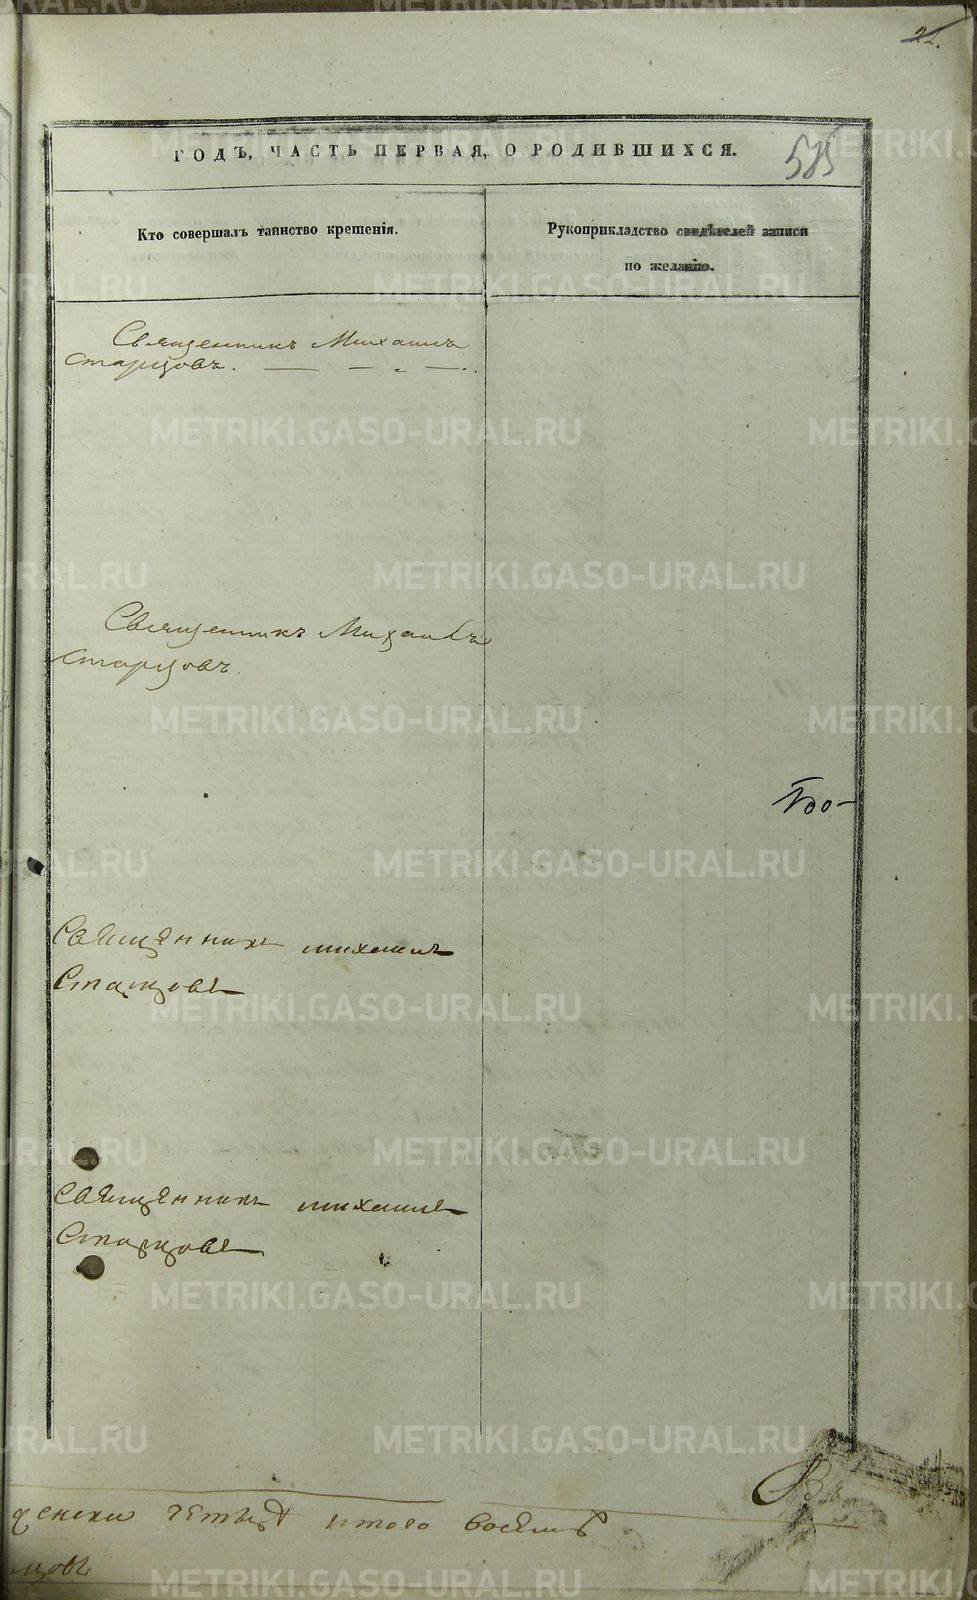 21.
ГОДЪ, ЧАСТЬ ПЕРВАЯ, О РОДИВШИХСЯ.
585
Кто совершалъ таинство крещенія.
Рукоприкладство свидѣтелей записи
по желанію.
Священникъ Михаилъ
Старцовъ.
Священникъ Михаилъ
Старцовъ.
Священникъ михаилъ
Старцовъ
Священникъ михаилъ
Старцовъ
женска четыре итого восемь
цовъ
METRIKI.GASO-URAL.RU